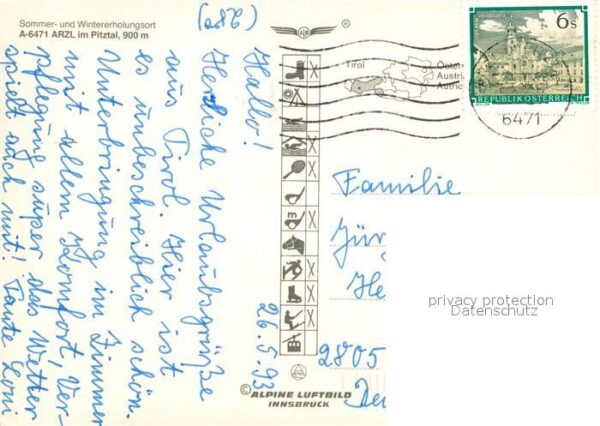 Sommer- und Wintererholungsort
A-6471 ARZL im Pitztal, 900 m
Hallo!
Herzliche Urlaubsgrüße
aus Tirol. Hier ist
es unbeschreiblich schön.
Unterbringung im Zimmer
mit allem Komfort, Ver-
pflegung super, das Wetter
spielt auch mit! Tante Loni
26.5.93
Tirol
Öster
Austri
Autric
6 s
REPUBLIK ÖSTERREICH
6471
Familie
Jür
He
2805
De
privacy protection
Datenschutz
© ALPINE LUFTBILD
INNSBRUCK